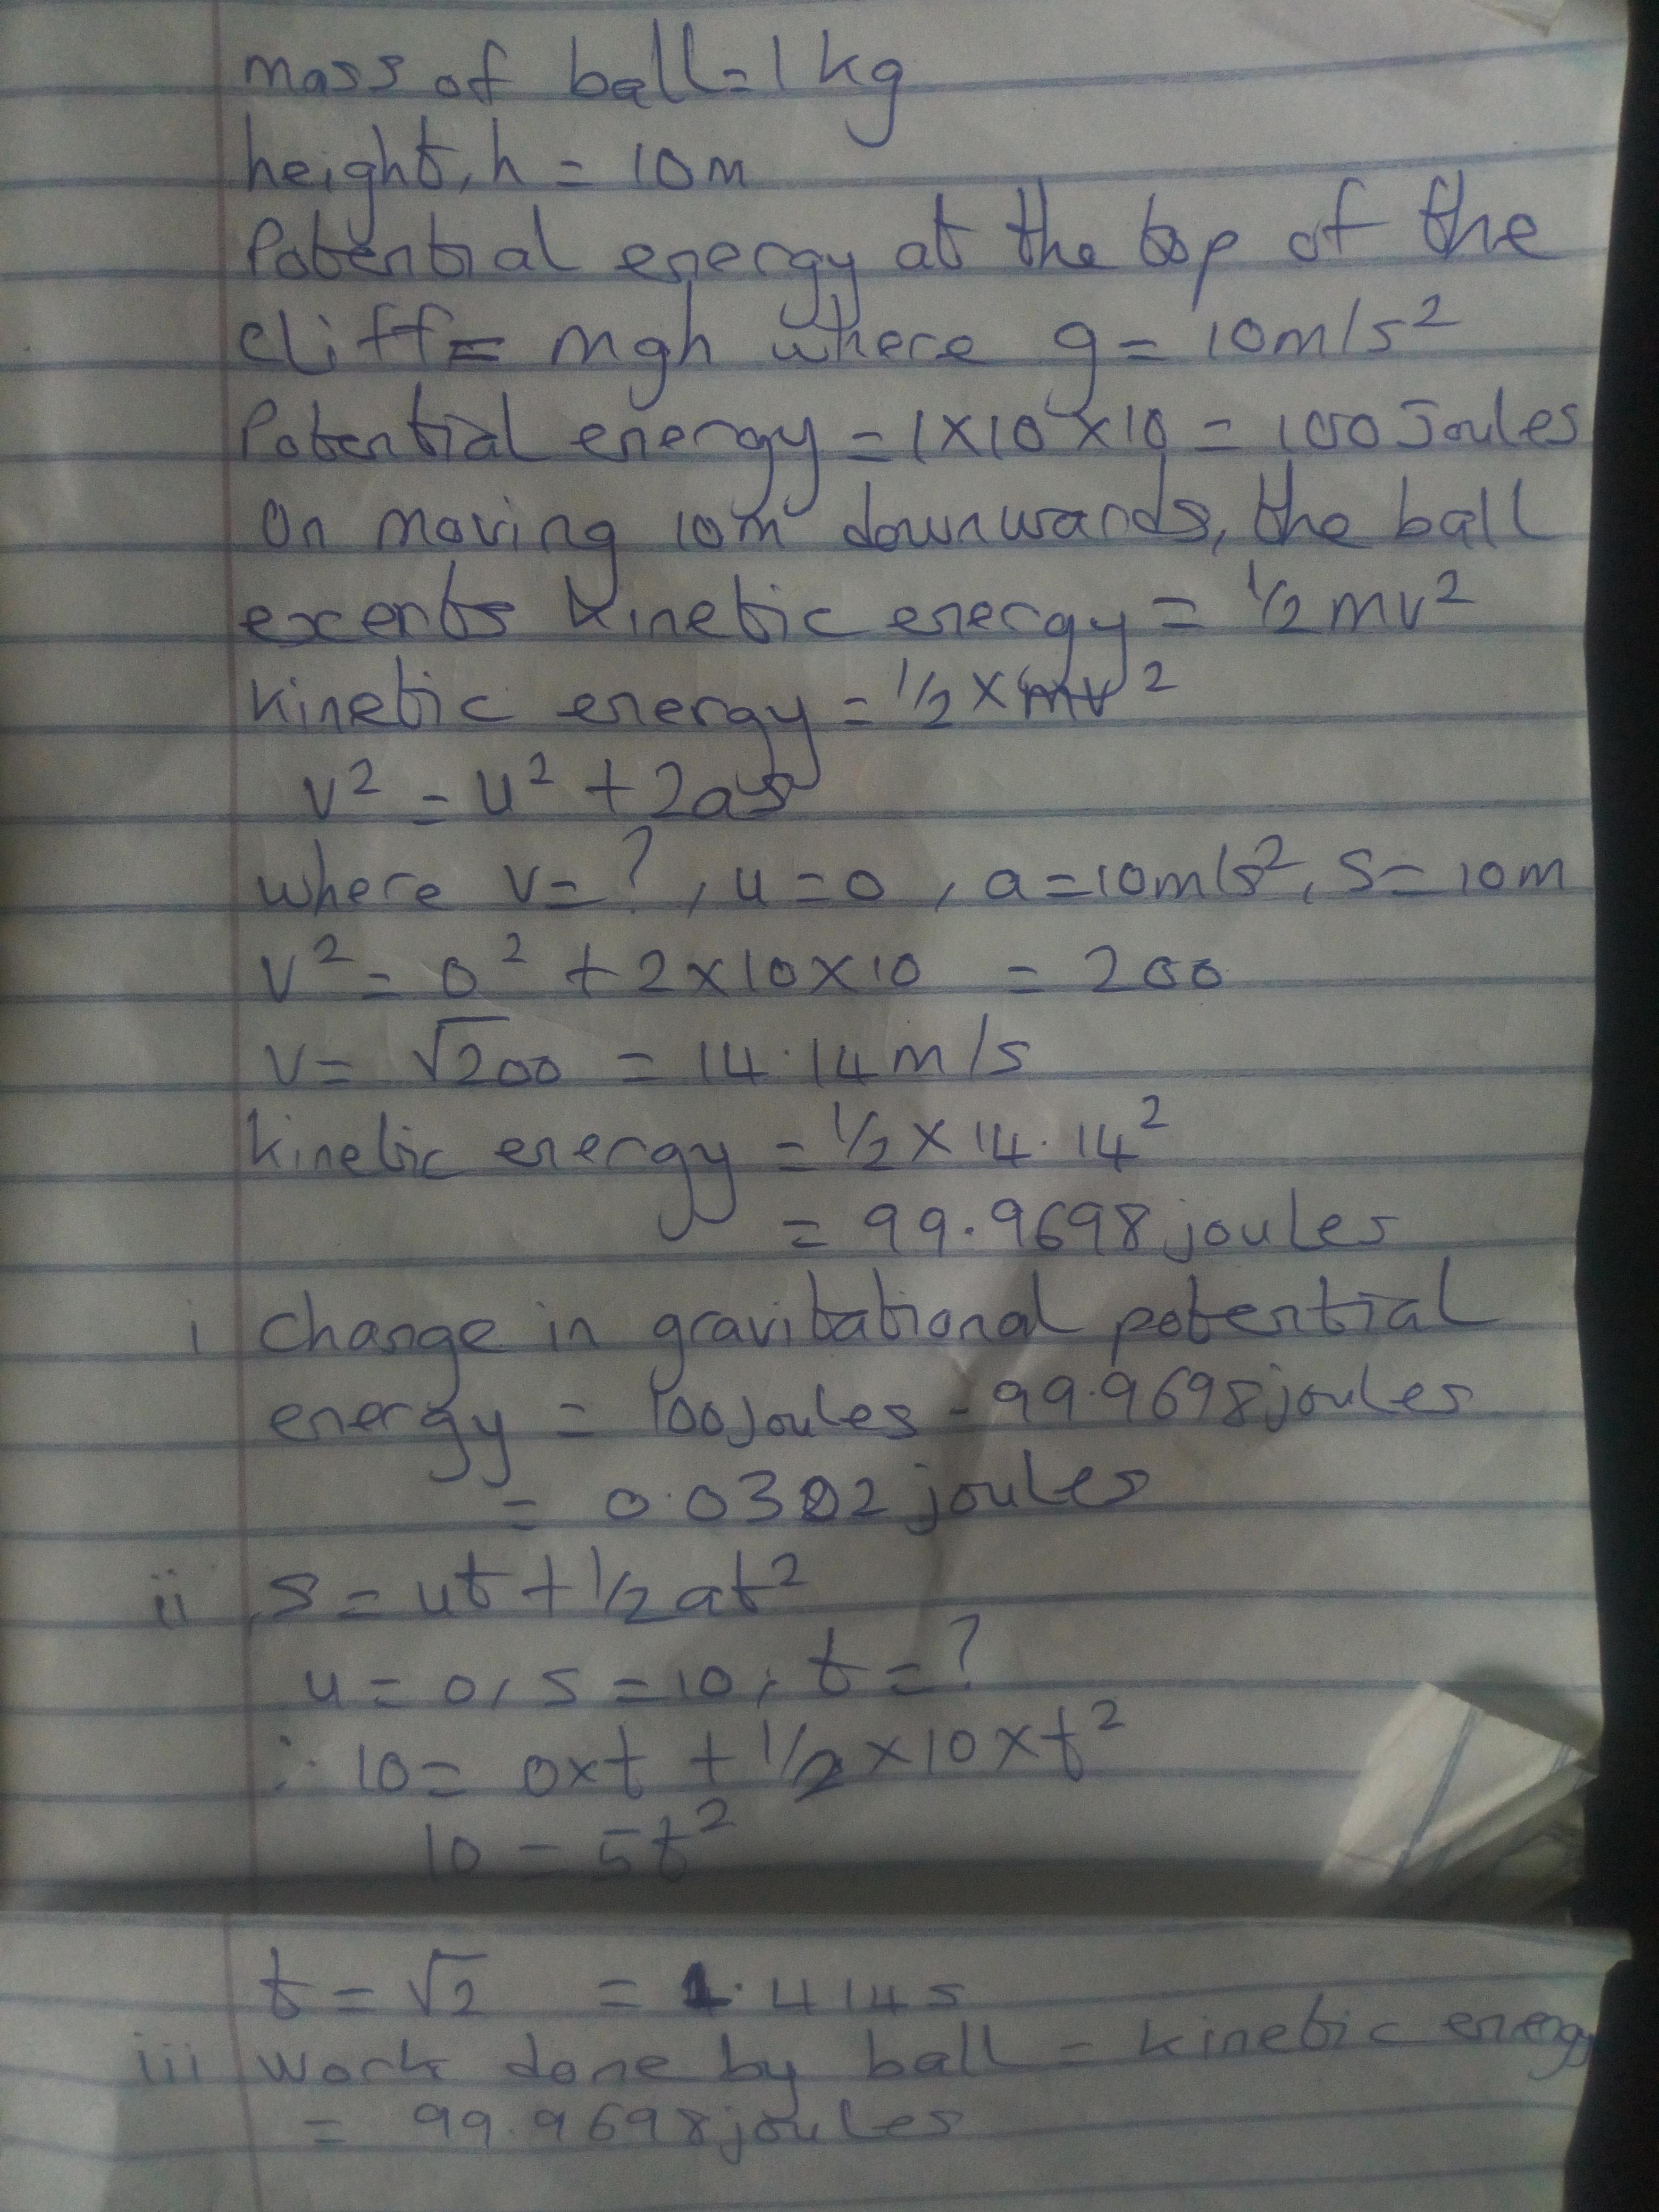 mass of ball = 1kg
height, h = 10m
Potential energy at the top of the
cliff = mgh where g = 10m/s²
Potential energy = 1×10×10 = 100 Joules
On moving 10m downwards, the ball
excerts kinetic energy = ½mv²
Kinetic energy = ½ × mv²
v² = u² + 2as
where v = ?, u = 0, a = 10m/s², s = 10m
v² = 0² + 2×10×10 = 200
v = √200 = 14.14m/s
kinetic energy = ½ × 14.14²
= 99.9698 joules
i change in gravitational potential
energy = 100 joules - 99.9698 joules
= 0.0302 joules
ii s = ut + ½at²
u = 0, s = 10, t = ?
∴ 10 = 0×t + ½×10×t²
10 = 5t²
t = √2 = 1.414s
iii work done by ball = kinetic energy
= 99.9698 joules